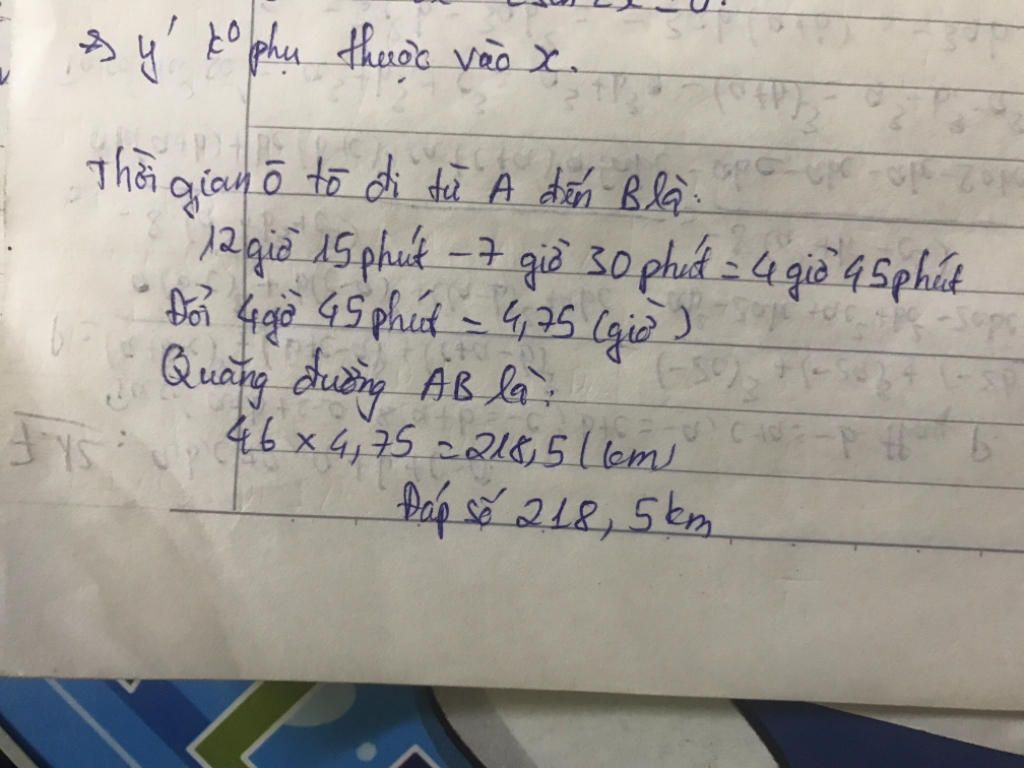 => y' k° phụ thuộc vào x.
Thời gian ô tô đi từ A đến B là:
12 giờ 15 phút - 7 giờ 30 phút = 4 giờ 45 phút
Đổi 4 giờ 45 phút = 4,75 (giờ)
Quãng đường AB là:
46 × 4,75 = 218,5 (km)
Đáp số 218,5 km